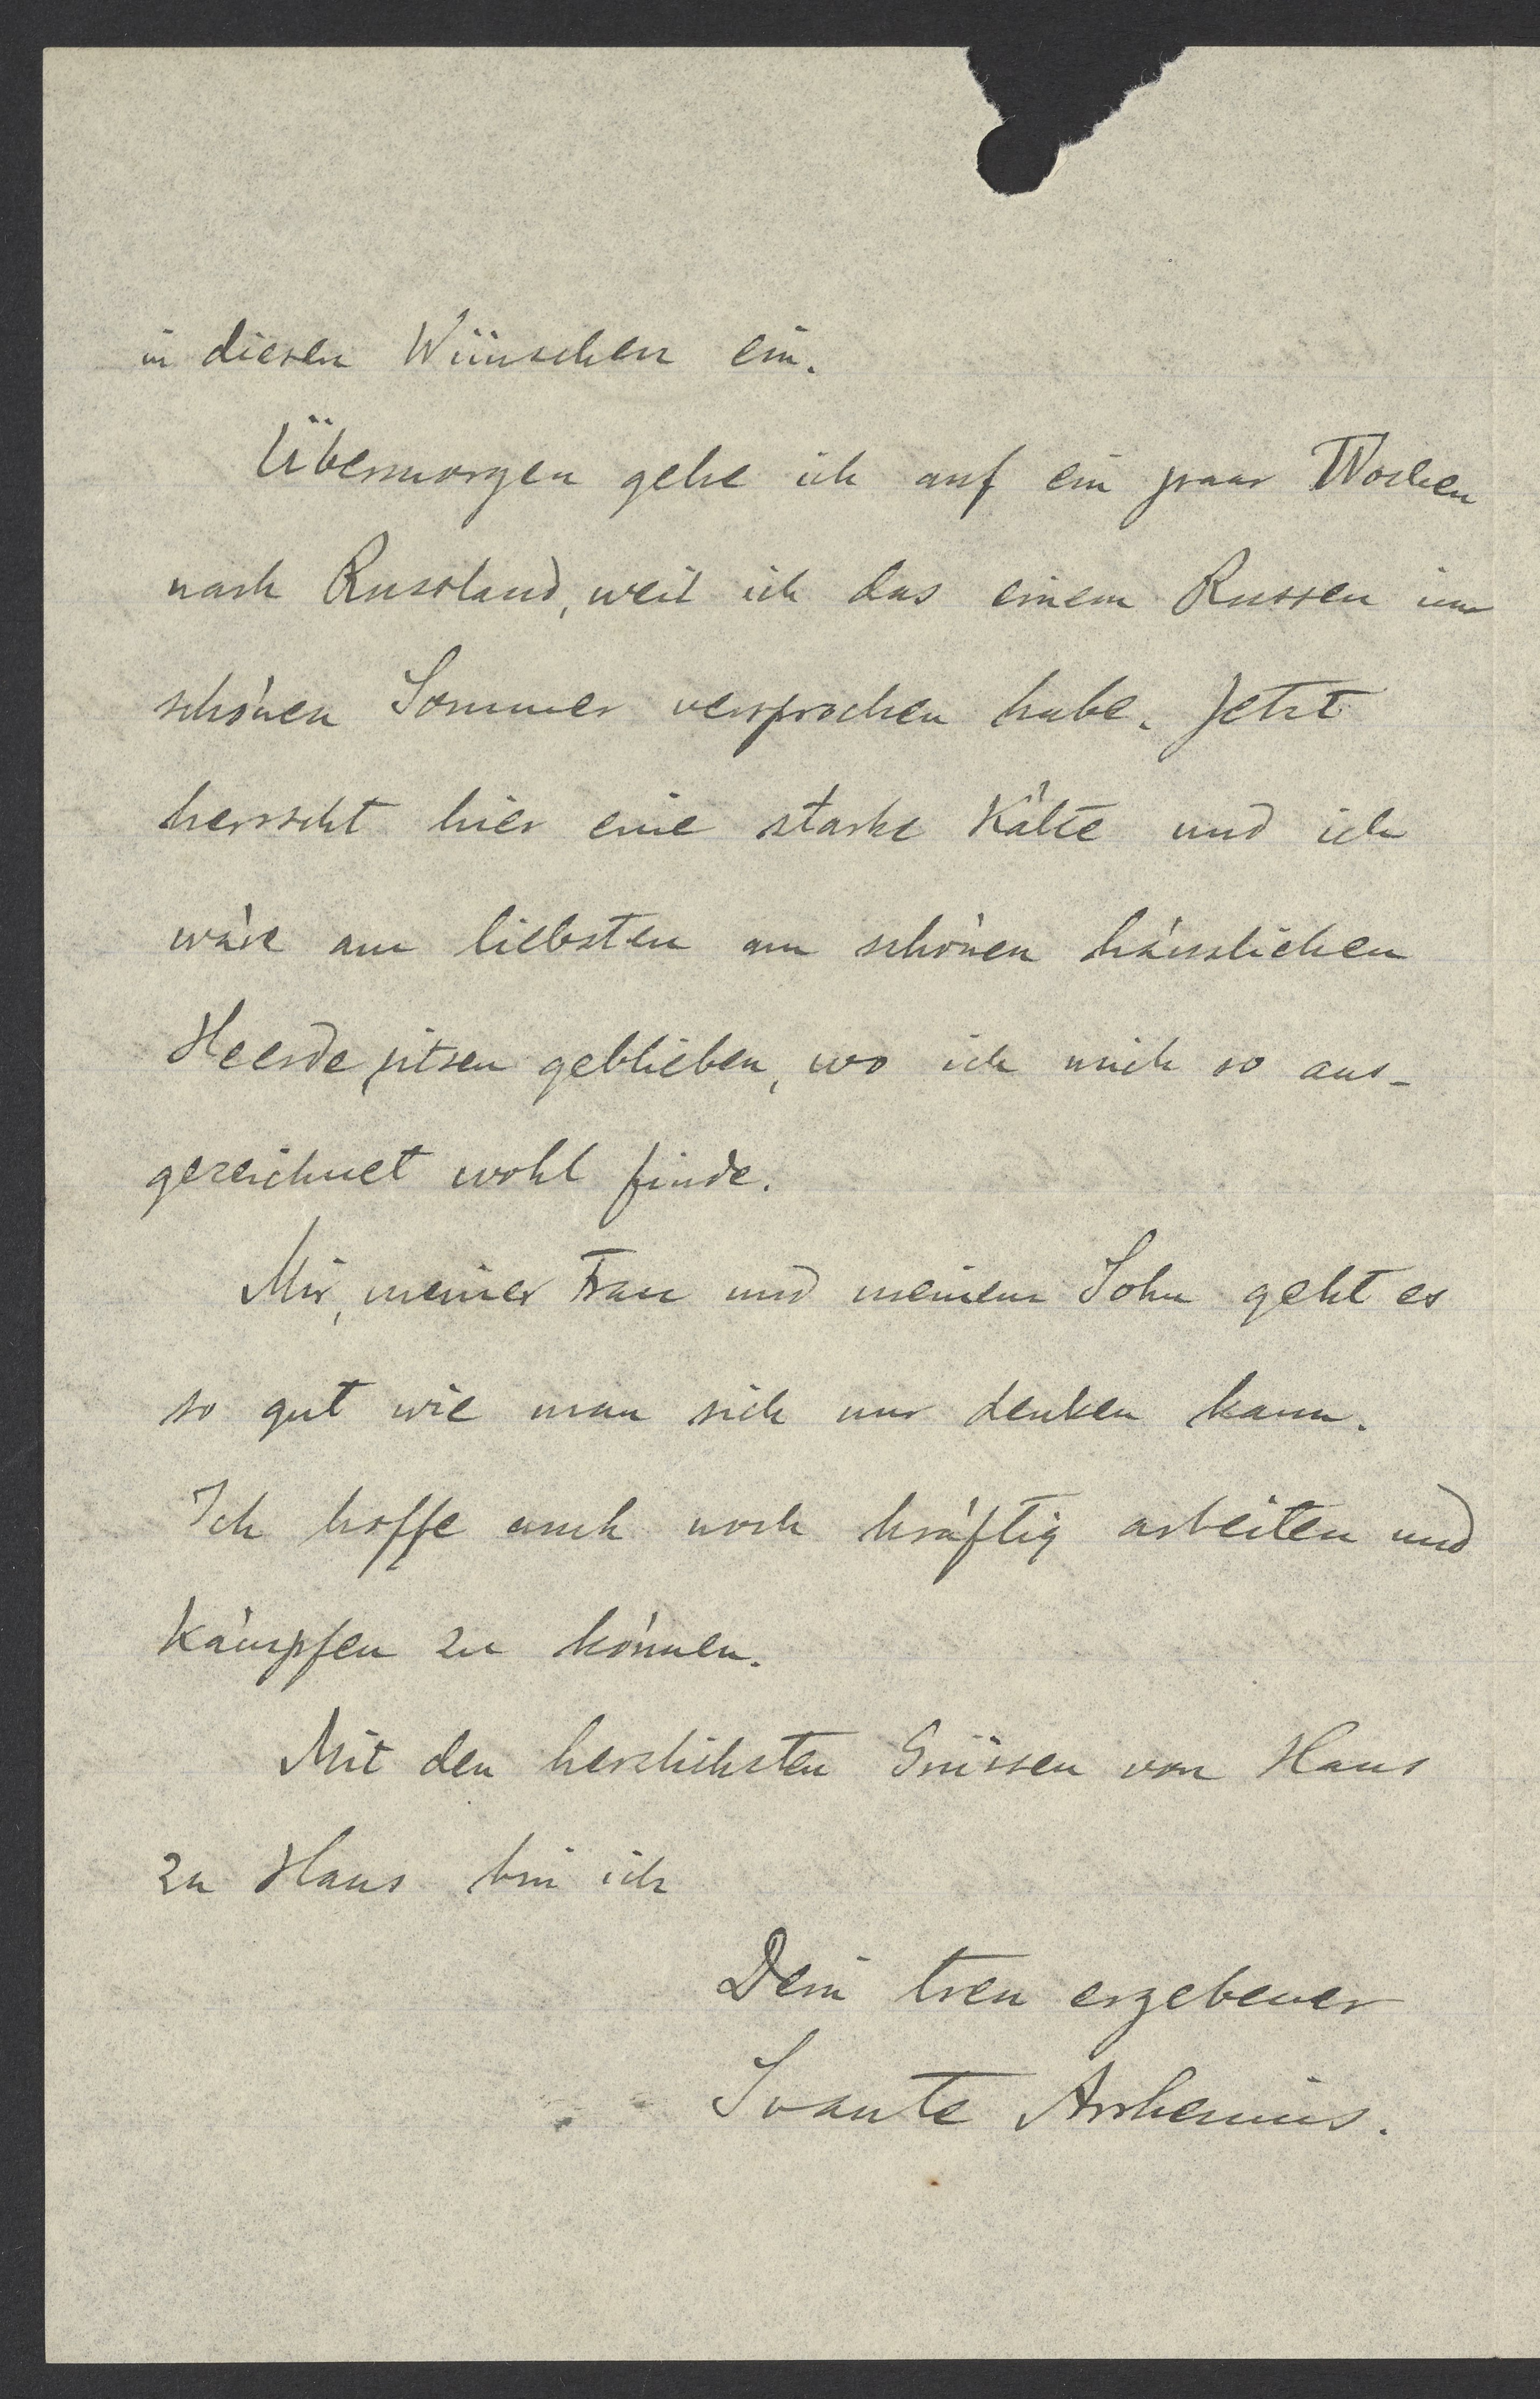 in diesen Wünschen ein.
Übermorgen gehe ich auf ein paar Wochen
nach Russland, weil ich das einem Russen im
schönen Sommer versprochen habe. Jetzt
herrscht hier eine starke Kälte und ich
wäre am liebsten am schönen häuslichen
Heerde sitzen geblieben, wo ich mich so aus-
gezeichnet wohl finde.
Mir, meiner Frau und meinem Sohn geht es
so gut wie man sich nur denken kann.
Ich hoffe auch noch kräftig arbeiten und
kämpfen zu können.
Mit den herzlichsten Grüssen von Haus
zu Haus bin ich
Dein treu ergebener
Svante Arrhenius.